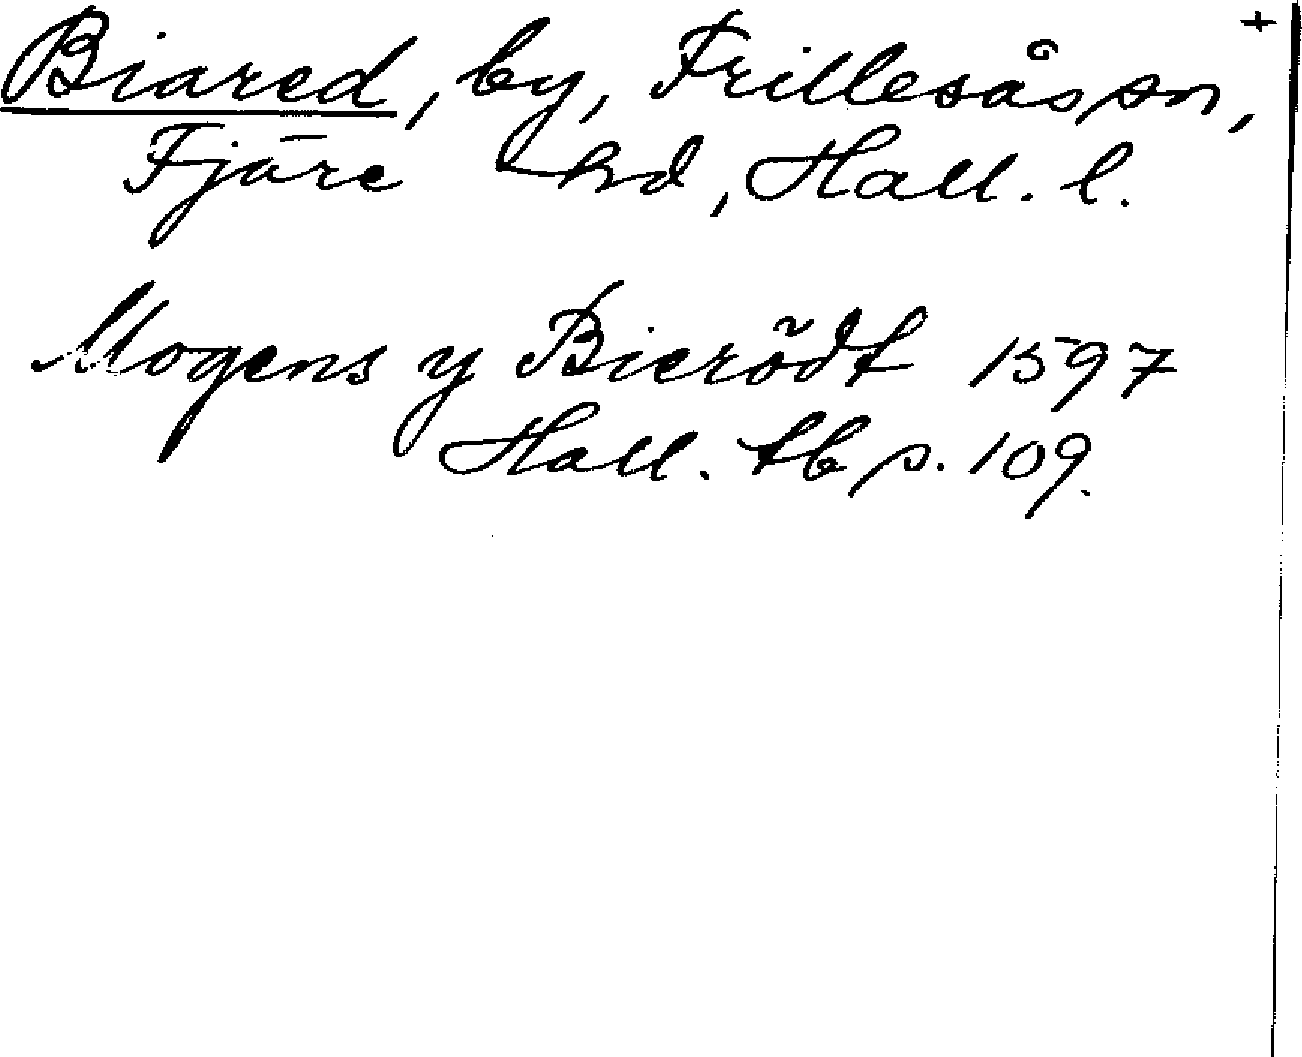 +
Biared, by, Frillesås sn,
Fjäre hd, Hall. l.
Mogens y Bierödt 1597
Hall. tb s. 109.